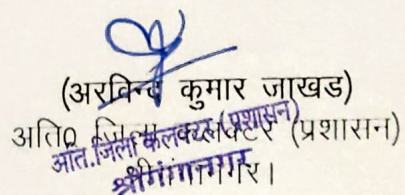 (अरविन्द कुमार जाखड)
अति0 जिला कलक्टर (प्रशासन)
अति. जिला कलक्टर (प्रशासन)
श्रीगंगानगर।
श्रीगंगानगर